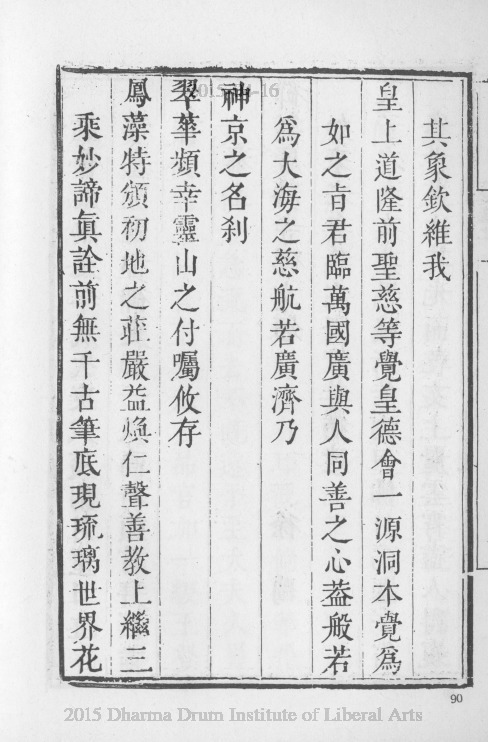 其象欽維我
皇上道隆前聖慈等覺皇德會一源洞本覺爲
如之旨君臨萬國廣與人同善之心葢般若
爲大海之慈航若廣濟乃
神京之名刹
翠華頻幸靈山之付囑攸存
鳳藻特頒初地之莊嚴益煥仁聲善教上繼三
乘妙諦眞詮前無千古筆底現琉璃世界花
90
2015 Dharma Drum Institute of Liberal Arts